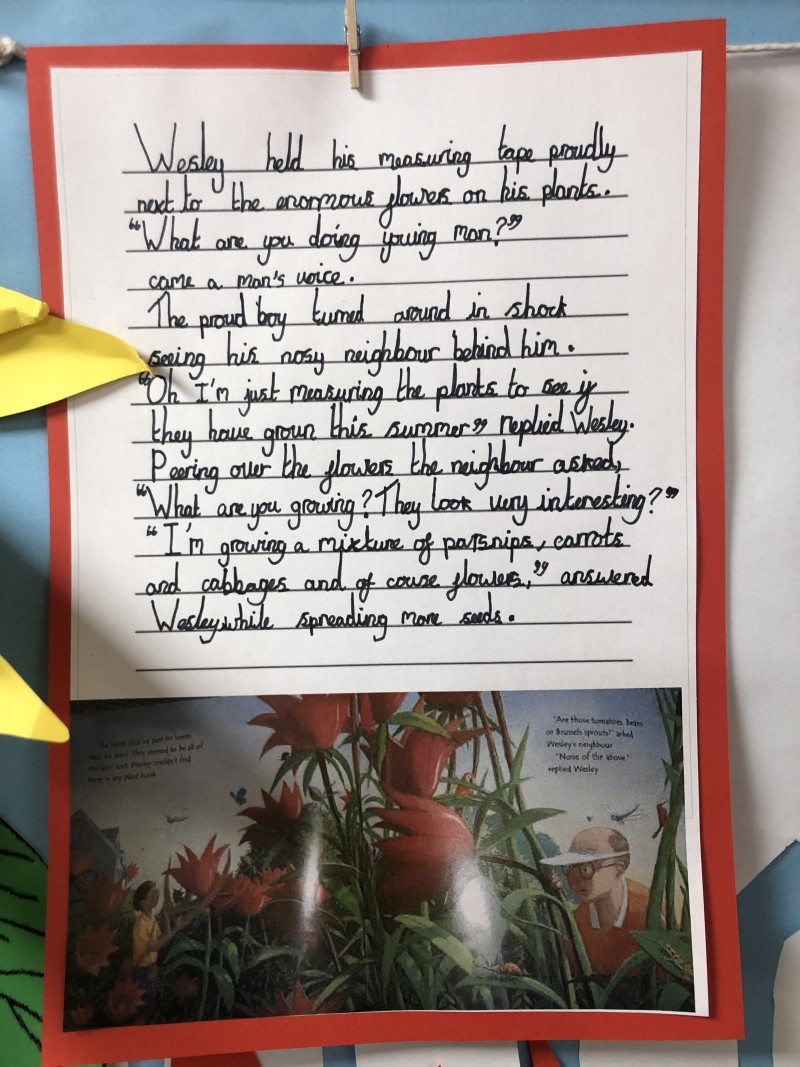 Wesley held his measuring tape proudly
next to the enormous flowers on his plants.
“What are you doing young man?”
came a man's voice.
The proud boy turned around in shock
seeing his nosy neighbour behind him.
“Oh I'm just measuring the plants to see if
they have groun this summer” replied Wesley.
Peering over the flowers the neighbour asked,
“What are you growing? They look very interesting?”
“I'm growing a mixture of parsnips, carrots
and cabbages and of couse flowers,” answered
Wesley while spreading more seeds.
than he was. They seemed to be all of
the same sort. Wesley couldn't find
them in any plant book.
“Are those tomatoes, beans
or Brussels sprouts?” asked
Wesley's neighbour.
“None of the above,”
replied Wesley.